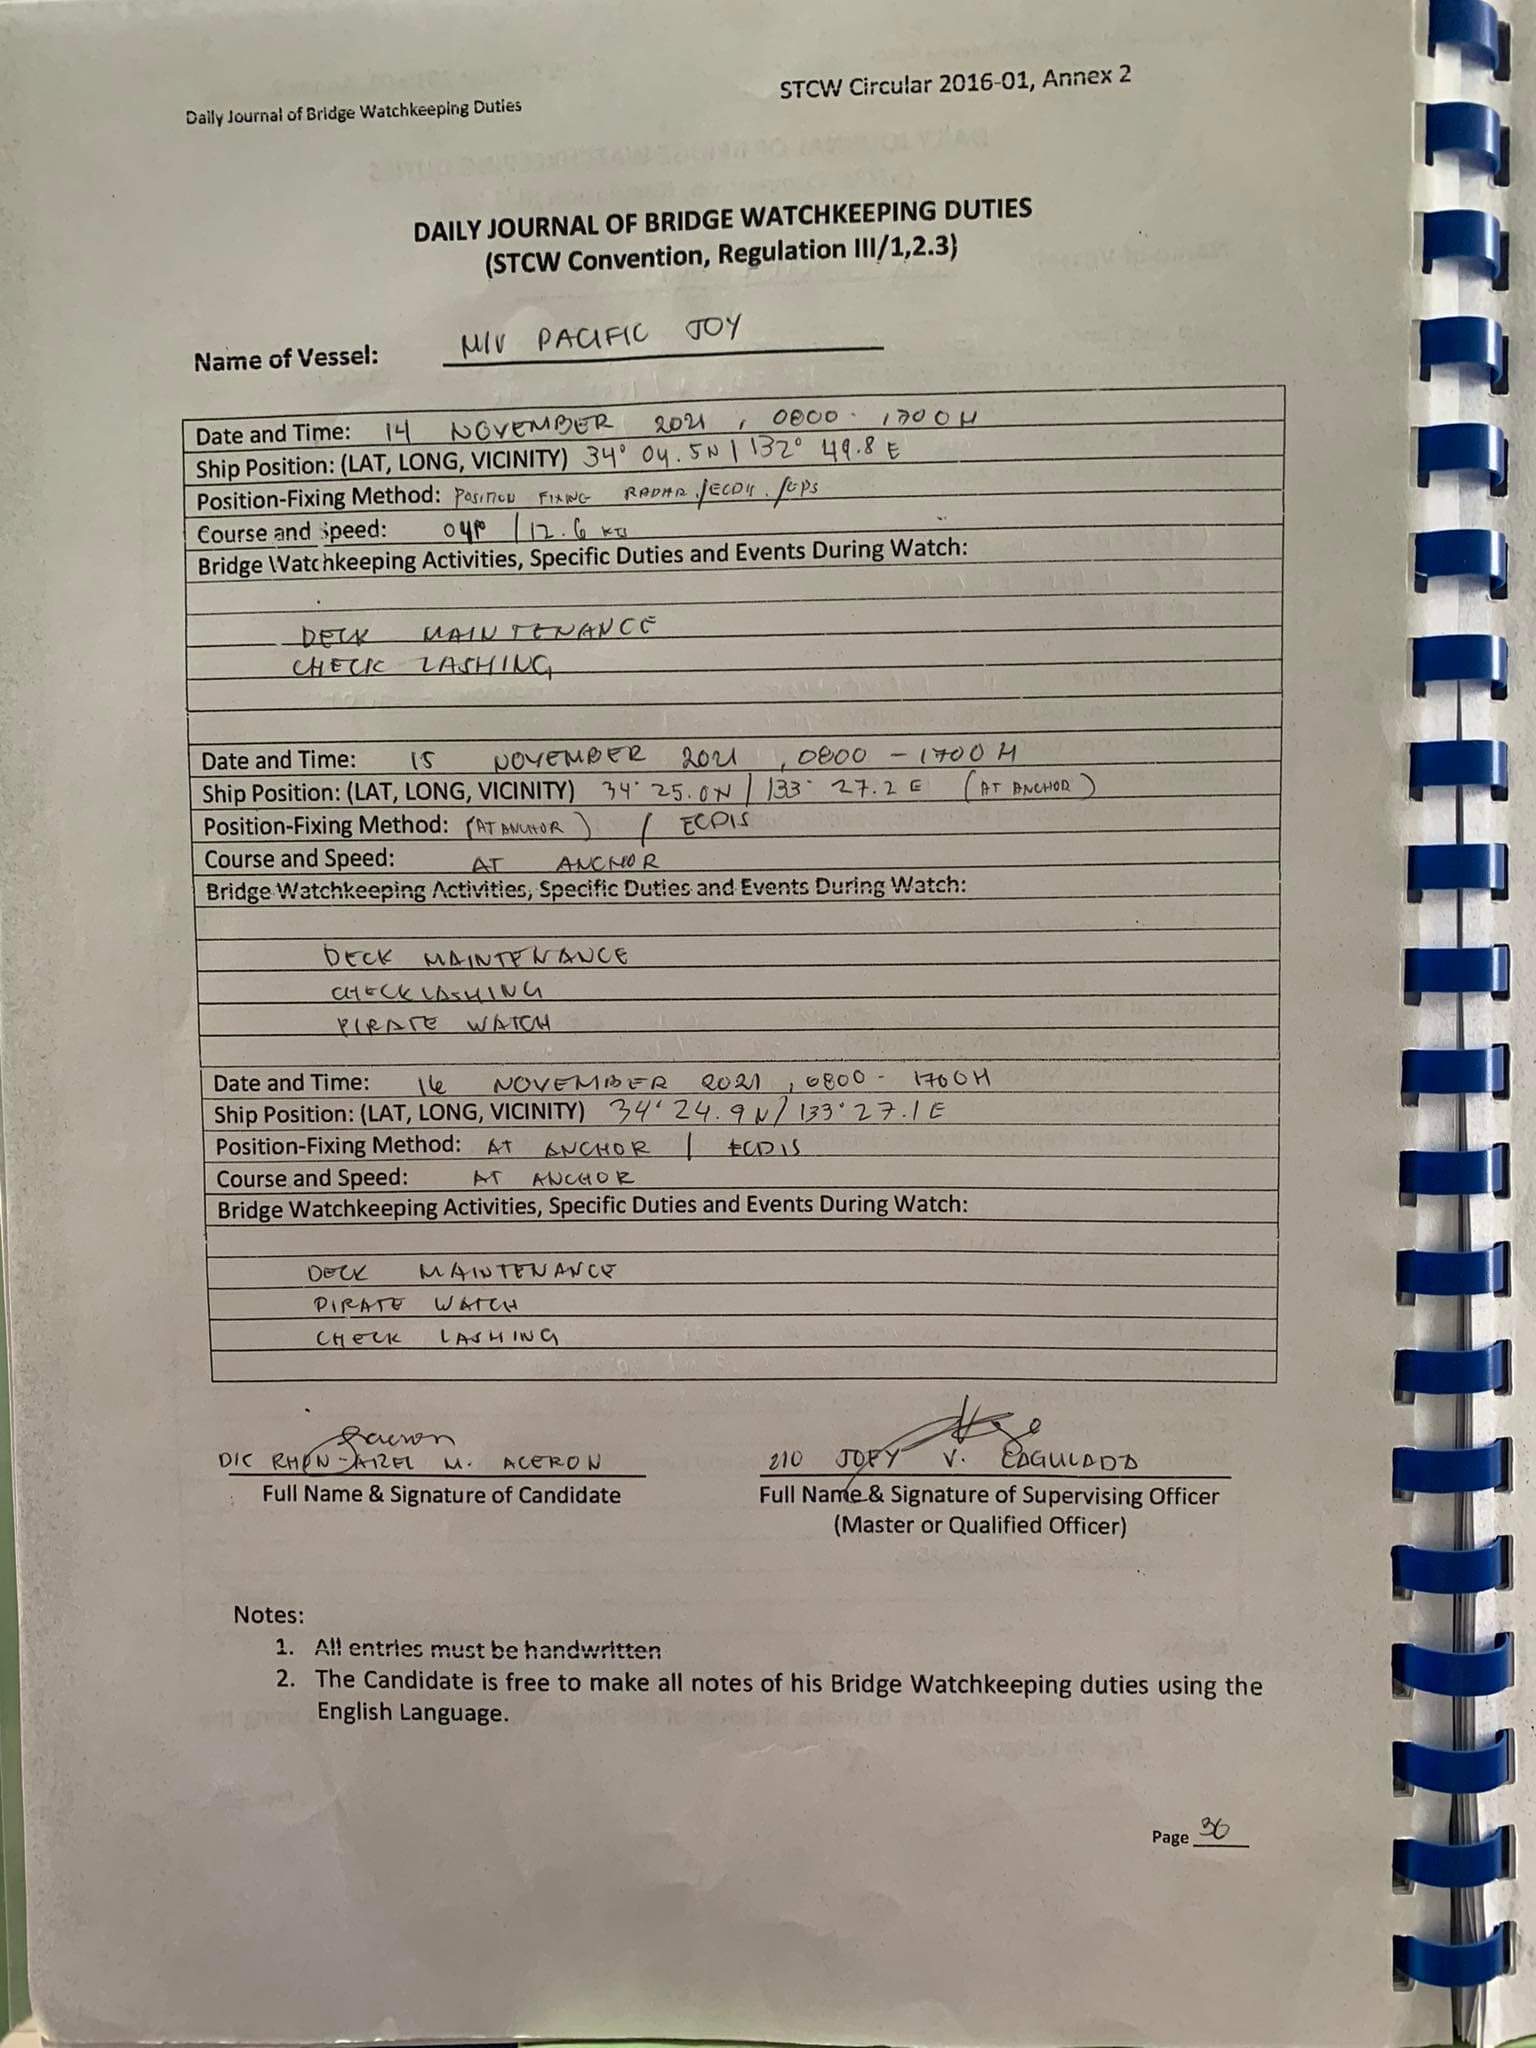 Daily Journal of Bridge Watchkeeping Duties
STCW Circular 2016-01, Annex 2
DAILY JOURNAL OF BRIDGE WATCHKEEPING DUTIES
(STCW Convention, Regulation III/1,2.3)
Name of Vessel: M/V PACIFIC JOY
Date and Time: 14 NOVEMBER 2021, 0800 - 1700H
Ship Position: (LAT, LONG, VICINITY) 34° 04.5N | 132° 49.8 E
Position-Fixing Method: POSITION FIXING RADAR/ECDIS/GPS
Course and Speed: | 12.6 KTS
Bridge Watchkeeping Activities, Specific Duties and Events During Watch:
DECK MAINTENANCE
CHECK LASHING
Date and Time: 15 NOVEMBER 2021, 0800 - 1700H
Ship Position: (LAT, LONG, VICINITY) 34° 25.0N / 133° 27.2 E (AT ANCHOR)
Position-Fixing Method: (AT ANCHOR) / ECDIS
Course and Speed: AT ANCHOR
Bridge Watchkeeping Activities, Specific Duties and Events During Watch:
DECK MAINTENANCE
CHECK LASHING
PIRATE WATCH
Date and Time: 16 NOVEMBER 2021, 0800 - 1700H
Ship Position: (LAT, LONG, VICINITY) 34° 24.9 N / 133° 27.1 E
Position-Fixing Method: AT ANCHOR | ECDIS
Course and Speed: AT ANCHOR
Bridge Watchkeeping Activities, Specific Duties and Events During Watch:
DECK MAINTENANCE
PIRATE WATCH
CHECK LASHING
D/C RHON-AIZEL M. ACERON
2/O JOEY V. CAGULADA
Full Name & Signature of Candidate
Full Name & Signature of Supervising Officer
(Master or Qualified Officer)
Notes:
1. All entries must be handwritten
2. The Candidate is free to make all notes of his Bridge Watchkeeping duties using the
English Language.
Page 36